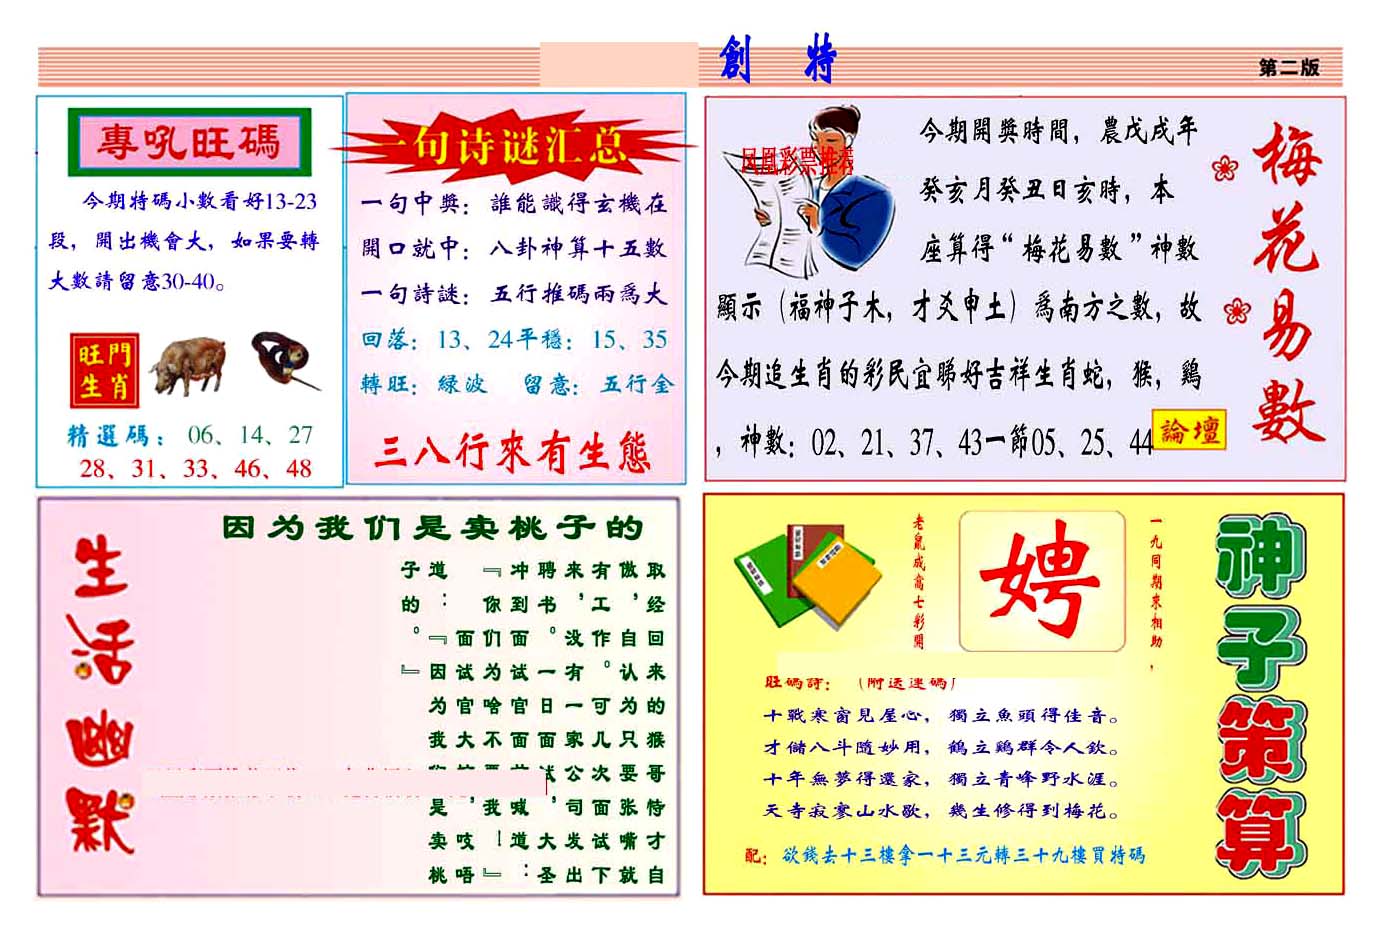 創 特
第二版
專吼旺碼
今期特碼小數看好13-23
段，開出機會大，如果要轉
大數請留意30-40。
旺門
生肖
精選碼：06、14、27
28、31、33、46、48
一句诗谜汇总
一句中奬：誰能識得玄機在
開口就中：八卦神算十五數
一句詩謎：五行推碼兩爲大
回落：13、24平穩：15、35
轉旺：緑波 留意：五行金
三八行來有生態
凤凰彩票推荐
今期開奬時間，農戊戌年
癸亥月癸丑日亥時，本
座算得“梅花易數”神數
顯示（福神子木，才爻申土）爲南方之數，故
今期追生肖的彩民宜睇好吉祥生肖蛇，猴，鷄
，神數：02、21、37、43一節05、25、44
論壇
梅花易數
生活幽默
因为我们是卖桃子的
取经回来的猴哥恃才自
傲，自认为只要张嘴就
有工作。可几次面试下
来，没有一家公司发出
聘书。一日面试，大圣
冲到面试官面前喊道：
『你们为啥不要我！』
面试官大，吱唔
道：『因为我们是卖桃
子的。』
神子策算
一九同期來相助，
娉
老鼠成高七彩開
旺碼詩：（附送連碼）
十戰寒窗見屋心，獨立魚頭得佳音。
才儲八斗隨妙用，鶴立鷄群令人欽。
十年無夢得還家，獨立青峰野水涯。
天寺寂寥山水歇，幾生修得到梅花。
配：欲錢去十三樓拿一十三元轉三十九樓買特碼